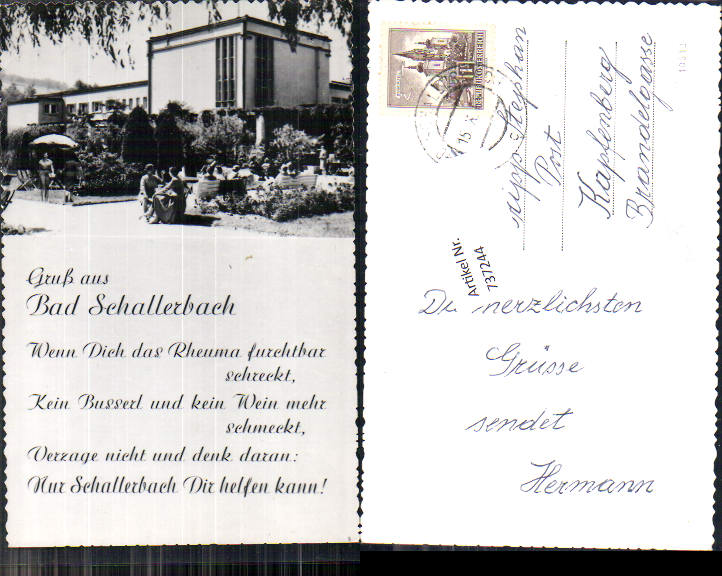 Gruß aus
Bad Schallerbach
Wenn Dich das Rheuma furchtbar
schreckt,
Kein Busserl und kein Wein mehr
schmeckt,
Verzage nicht und denk daran:
Nur Schallerbach Dir helfen kann!
Stephan
Post
Kapfenberg
Brandelgasse
Artikel Nr.
737244
herzlichsten
Grüsse
sendet
Hermann